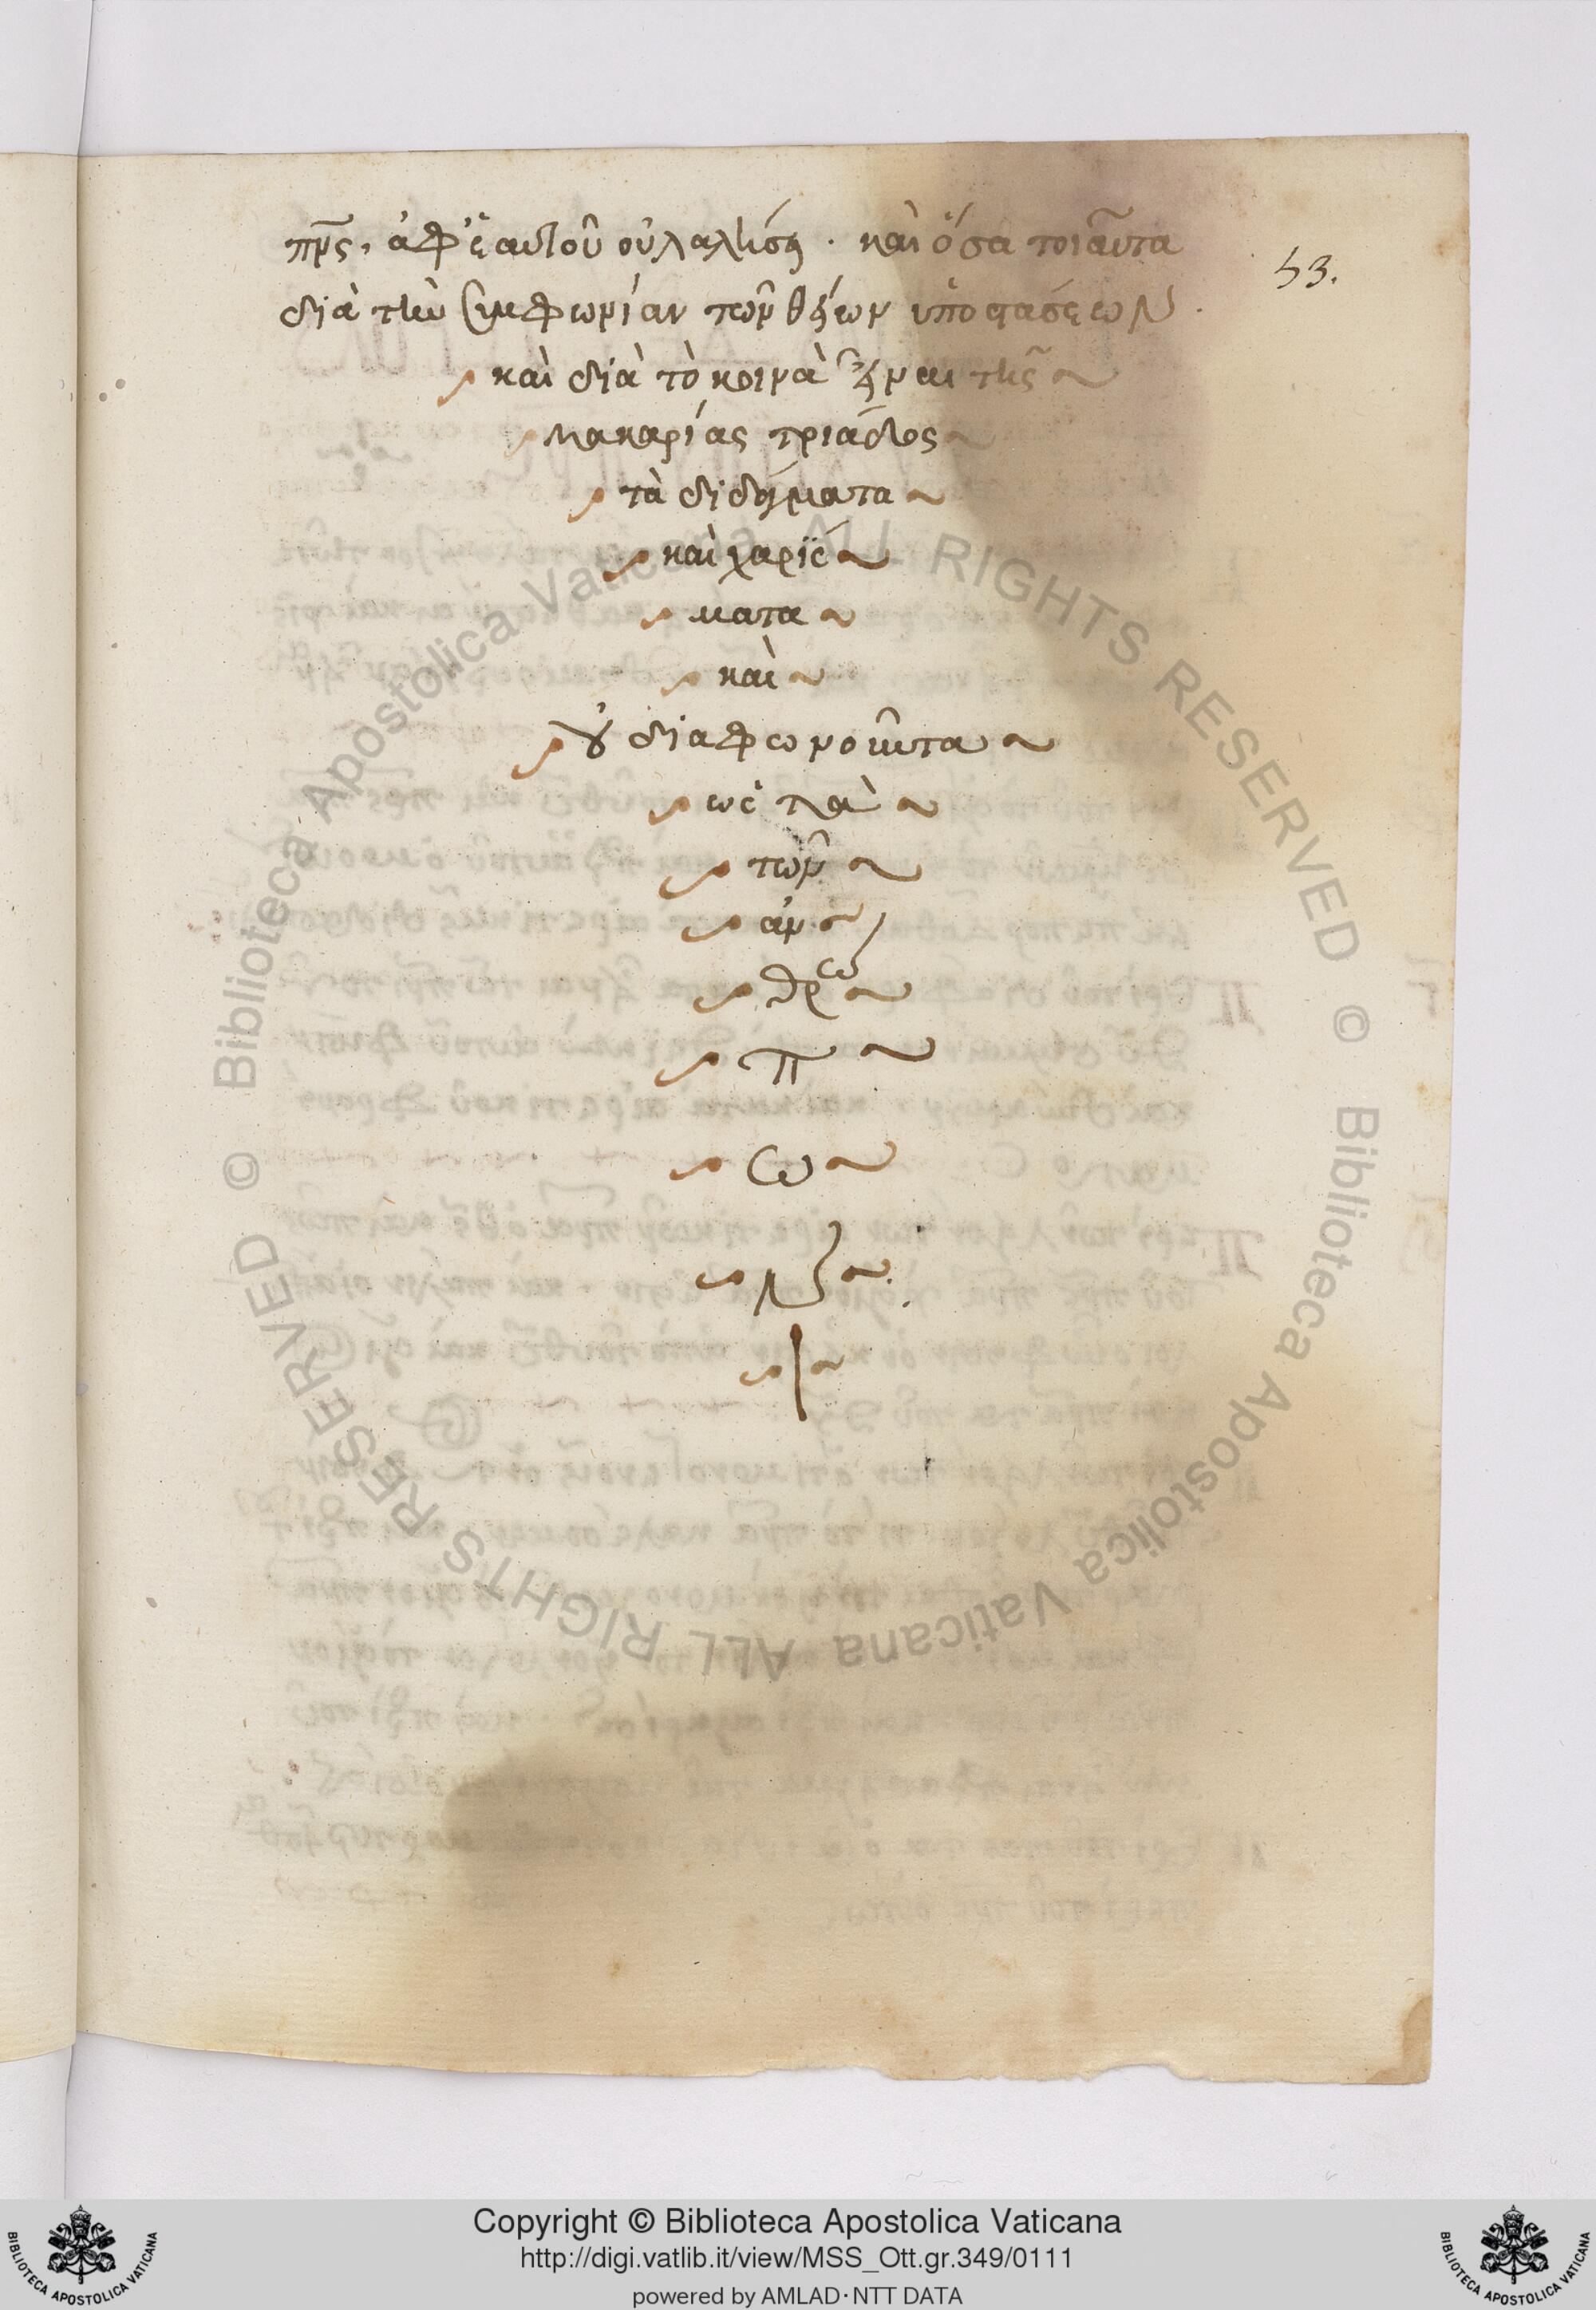 πρς, ἀφ' ἑαυτοῦ οὐ λαλήσῃ. καὶ ὅσα τοιαῦτα
53.
διὰ τὴν συμφωνίαν τῶν θείων ὑποστάσεων.
καὶ διὰ τὸ κοινὰ εἶναι τῆς
μακαρίας τριάδος
τὰ διδόματα
καὶ χαρίσ
ματα
καὶ
οὐ διαφωνοῦντα
ὡς τὰ
τῶν
ἀν
θρώ
π
ω
ν
Copyright © Biblioteca Apostolica Vaticana
http://digi.vatlib.it/view/MSS_Ott.gr.349/0111
powered by AMLAD·NTT DATA
BIBLIOTECA APOSTOLICA VATICANA
BIBLIOTECA APOSTOLICA VATICANA
© Biblioteca Apostolica Vaticana ALL RIGHTS RESERVED
© Biblioteca Apostolica Vaticana ALL RIGHTS RESERVED